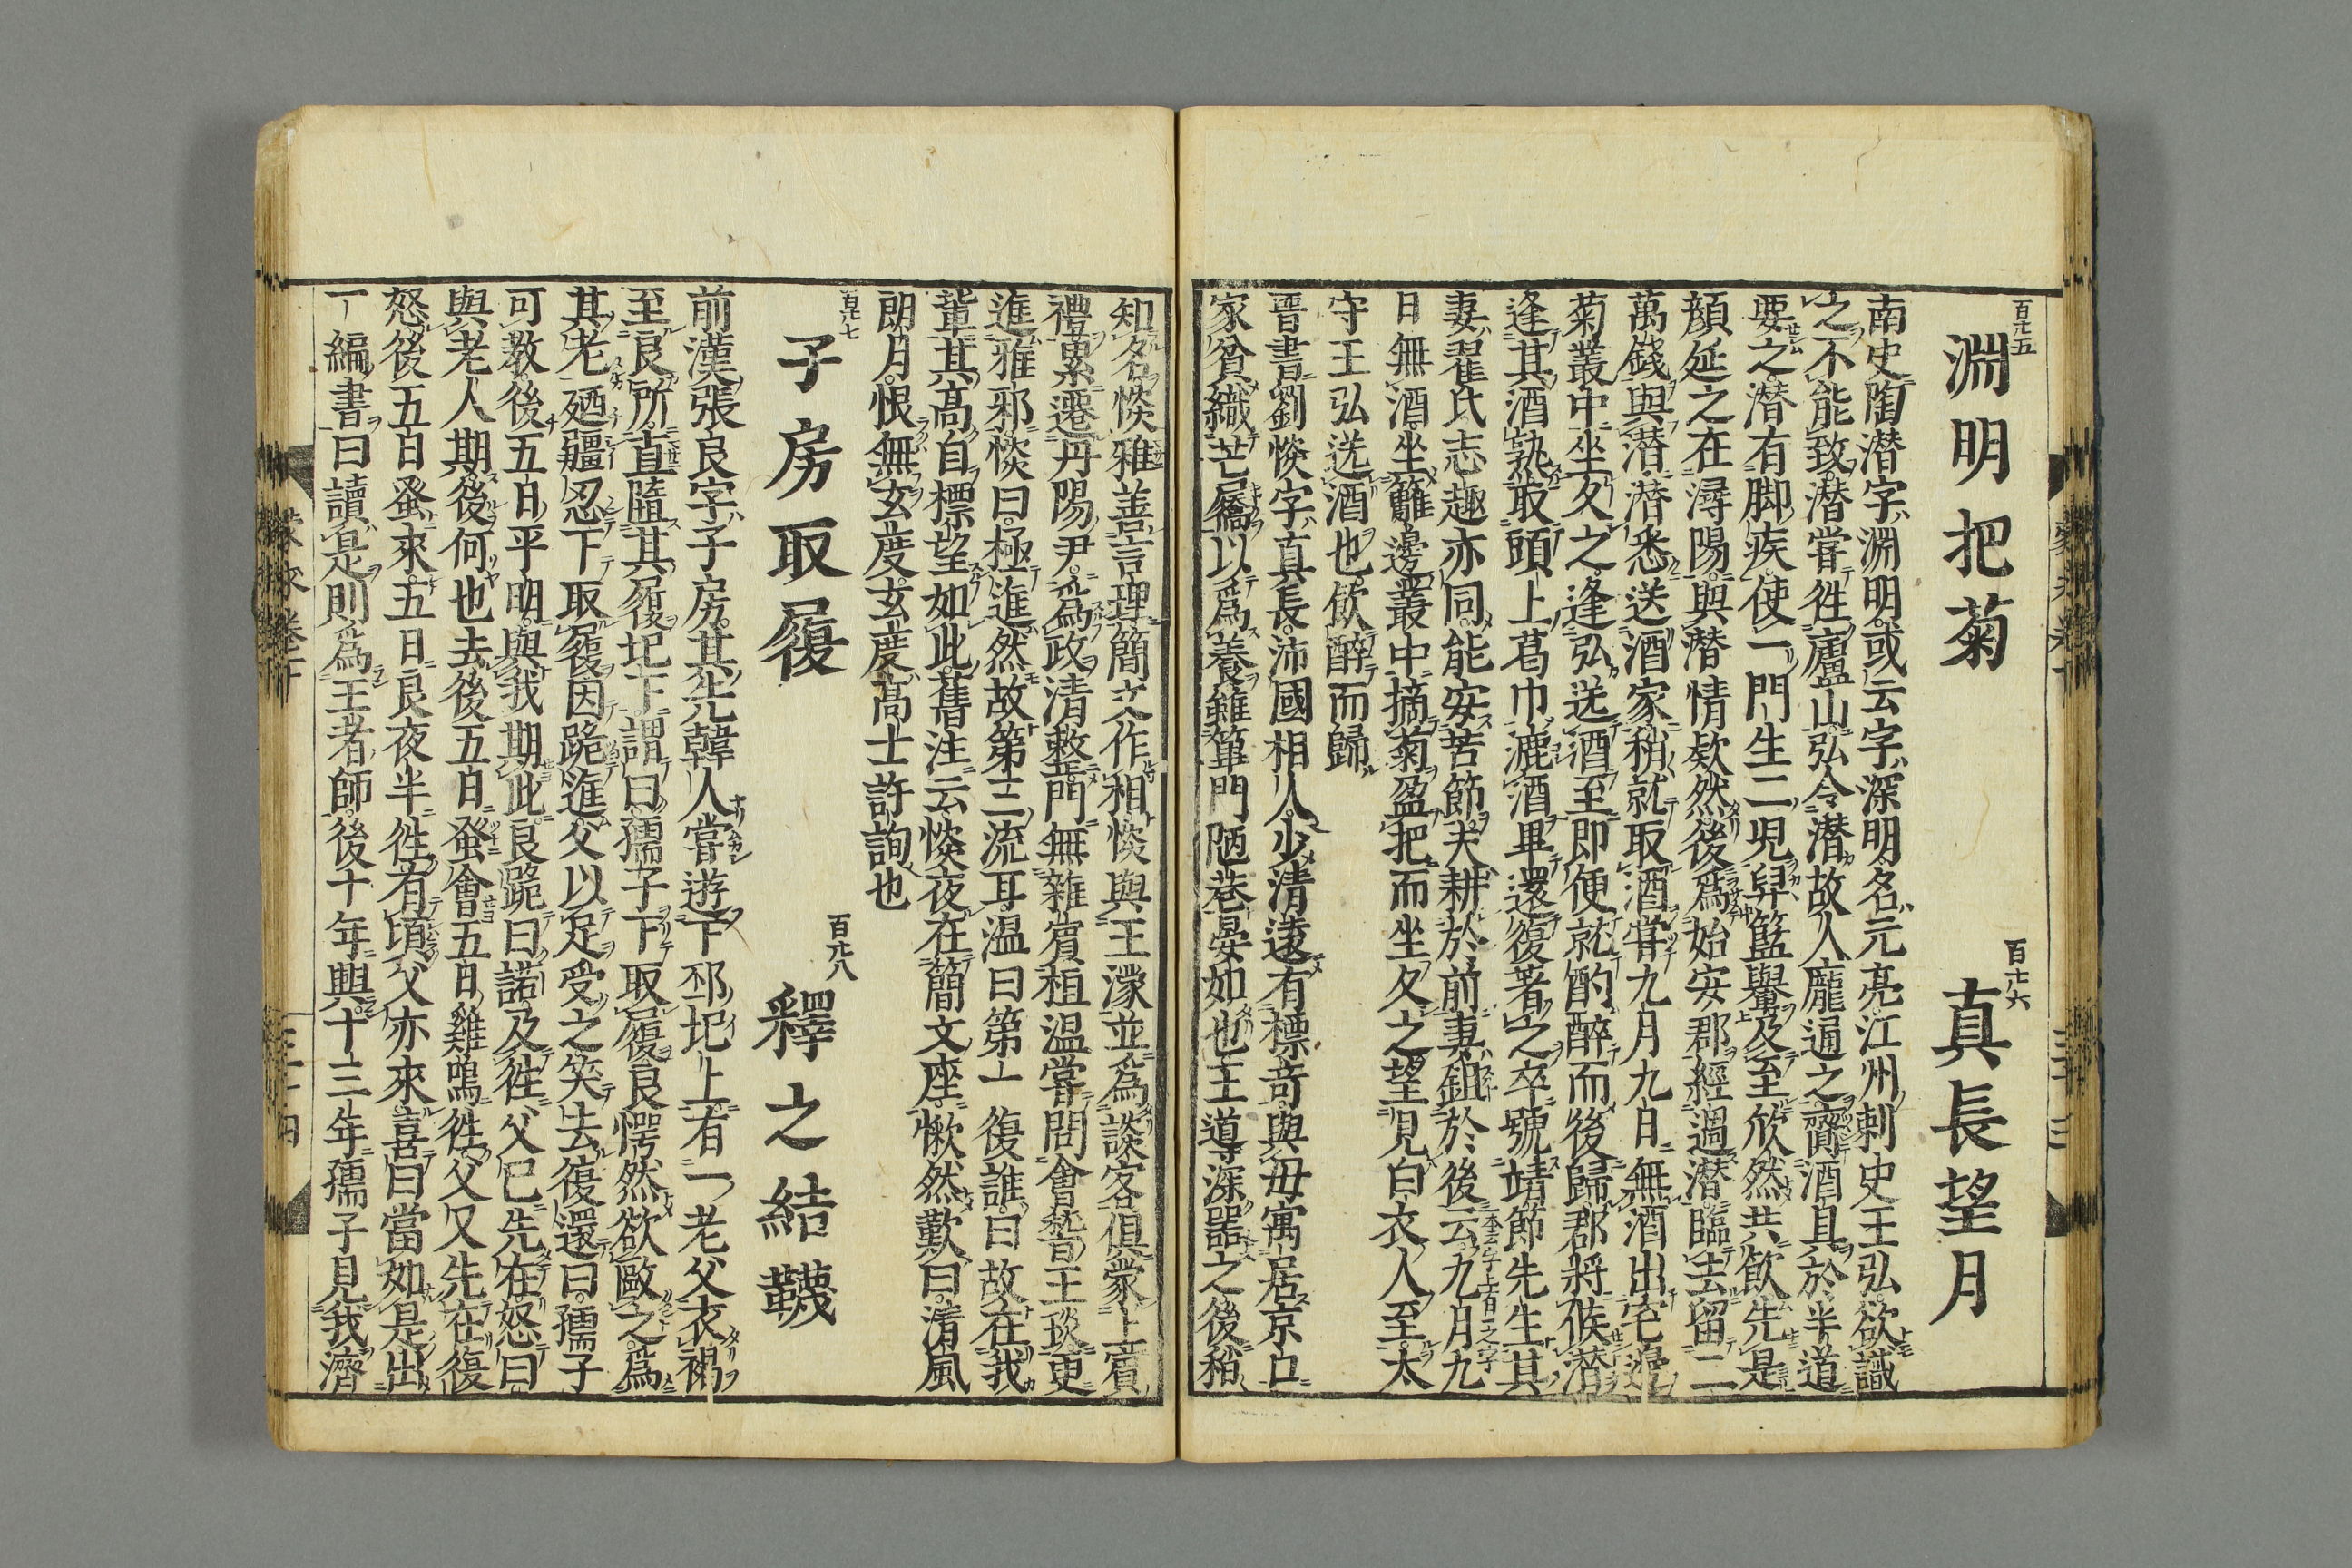 淵明把菊
真長望月
南史陶潜字淵明或云字深明名元亮江州刺史王弘欲識
之不能致潜甞徃廬山弘令潜故人龐通之齎酒具於半道
要之潜有脚疾使一門生二児舁籃轝及至欣然共飲先是
顔延之在潯陽與潜情欵然後為始安郡經過潜臨去留二
萬錢與潜潜悉送酒家稍就取酒甞九月九日無酒出宅邊
菊叢中坐久之逢弘送酒至即便就酌醉而後歸郡將候潜
逢其酒熟取頭上葛巾漉酒畢還復著之卒號靖節先生其
妻翟氏志趣亦同能安苦節夫耕於前妻鉏於後云九月九
日無酒坐籬邊叢中摘菊盈把而坐久之望見白衣人至太
守王弘送酒也飲醉而歸
晋書劉惔字真長沛國相人少清遠有標奇與母寓居京口
家貧織芒屩以為養雖篳門陋巷晏如也王導深器之後稍
知名惔雅善言理簡文作相惔與王濛並為談客俱蒙上賓
禮累遷丹陽尹為政清整門無雜賓桓温甞問會稽王談更
進雅邪惔曰極進然故第二流耳温曰第一復誰曰故在我
軰其高自標望如此舊注云惔夜在簡文座愀然歎曰清風
朗月恨無玄度玄度高士許詢也
子房取履
百卅八
釋之結韈
前漢張良字子房其先韓人甞遊下邳圯上有一老父衣褐
至良所直隨其履圯下謂曰孺子下取履良愕然欲歐之為
其老廼彊忍下取履因跪進父以足受之笑去復還曰孺子
可教後五日平明與我期此良跪曰諾及徃父已先在怒曰
與老人期後何也去後五日蚤會五日雞鳴徃父又先在復
怒後五日蚤來五日良夜半徃有頃父亦來喜曰當如是出
一編書曰讀是則為王者師後十年興十三年孺子見我濟